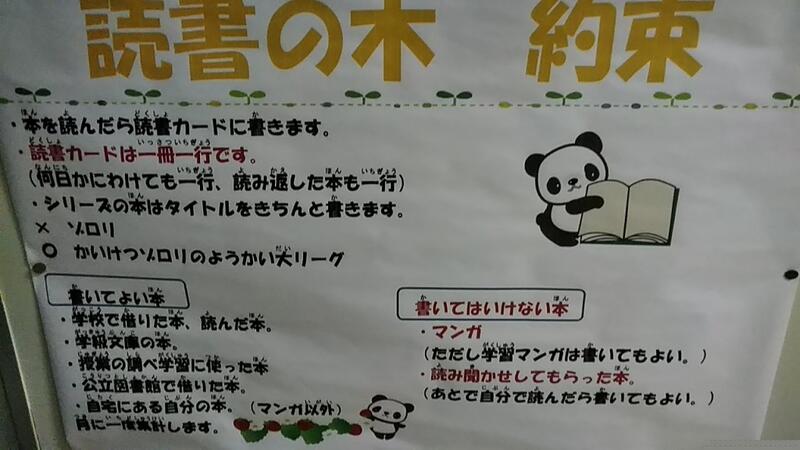 読書の木　約束
・本を読んだら読書カードに書きます。
・読書カードは一冊一行です。
（何日かにわけても一行、読み返した本も一行）
・シリーズの本はタイトルをきちんと書きます。
× ゾロリ
○ かいけつゾロリのようかい大リーグ
書いてよい本
・学校で借りた本、読んだ本。
・学級文庫の本。
・授業の調べ学習に使った本
・公立図書館で借りた本。
・自宅にある自分の本。（マンガ以外）
月に一度集計します。
書いてはいけない本
・マンガ
（ただし学習マンガは書いてもよい。）
・読み聞かせしてもらった本。
（あとで自分で読んだら書いてもよい。）